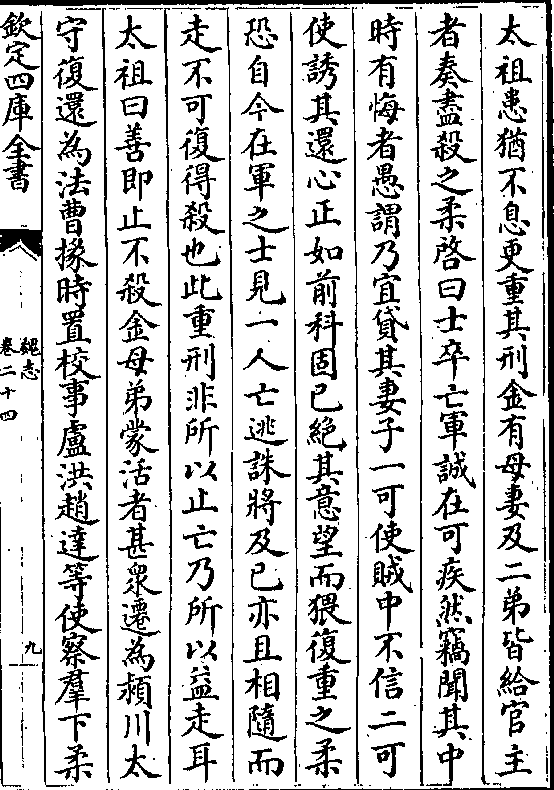 太祖患猶不息更重其刑金有母妻及二弟皆給官主
者奏盡殺之柔啓曰士卒亡軍誠在可疾然竊聞其中
時有悔者愚謂乃宜貸其妻子一可使賊中不信二可
使誘其還心正如前科固已絶其意望而猥復重之柔
恐自今在軍之士見一人亡逃誅將及已亦且相隨而
走不可復得殺也此重刑非所以止亡乃所以益走耳
太祖曰善即止不殺金母弟蒙活者甚衆遷為潁川太
守復還為法曹掾時置校事盧洪趙達等使察羣下柔
欽定四庫全書
魏志
卷二十四
九